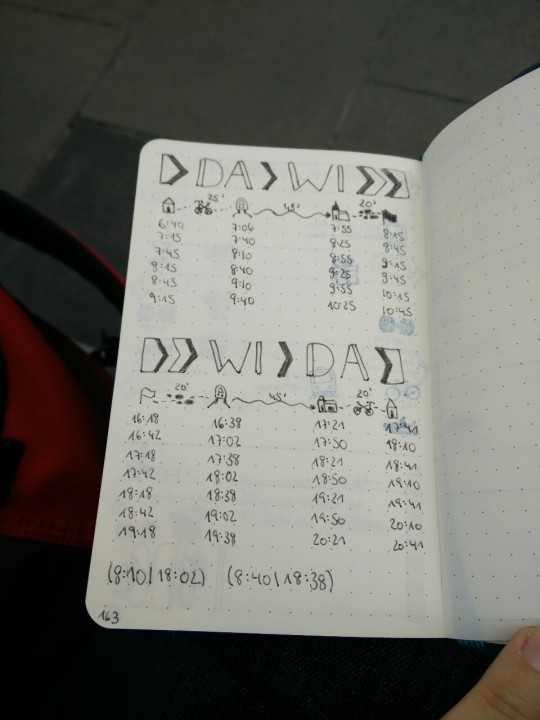 DA WI
25' 45' 20'
6:40 7:06 7:55 8:15
7:15 7:40 8:25 8:45
7:45 8:10 8:55 9:15
8:15 8:40 9:25 9:45
8:45 9:10 9:55 10:15
9:15 9:40 10:25 10:45
WI DA
20' 45' 20'
16:18 16:38 17:21 17:41
16:42 17:02 17:50 18:10
17:18 17:38 18:21 18:41
17:42 18:02 18:50 19:10
18:18 18:38 19:21 19:41
18:42 19:02 19:50 20:10
19:18 19:38 20:21 20:41
(8:10|18:02) (8:40|18:38)
163